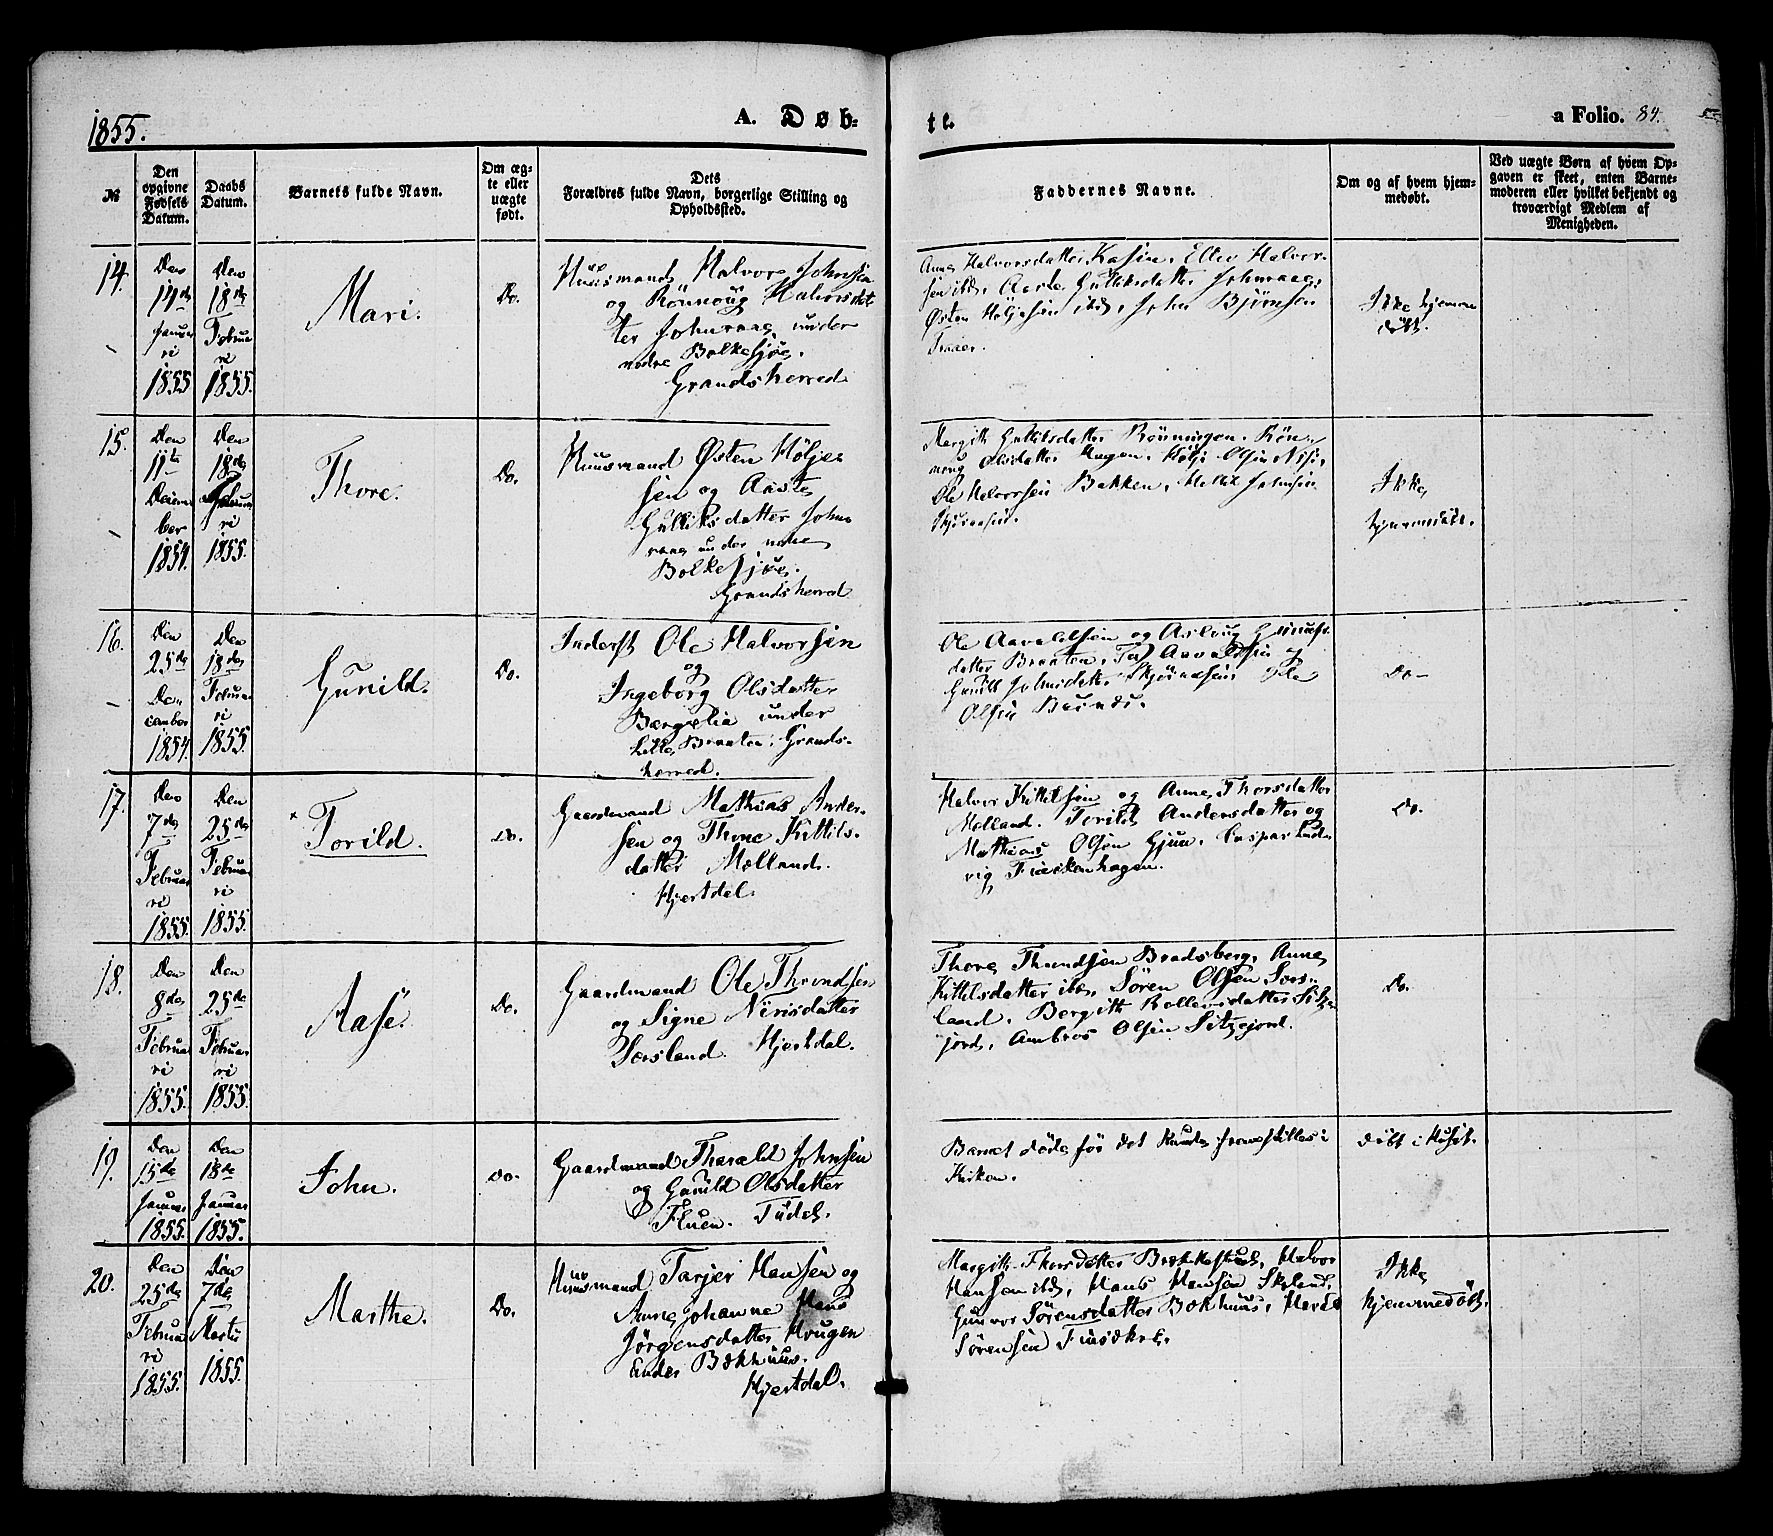 1855.
A. Døb-
te.
a Folio. 84.
№
Den opgivne Fødsels Datum.
Daabs Datum.
Barnets fulde Navn.
Om ægte eller uægte født.
Dets Forældres fulde Navn, borgerlige Stilling og Opholdssted.
Faddernes Navne.
Om og af hvem hjemmedøbt.
Ved uægte Børn af hvem Opgaven er skeet, enten Barnemoderen eller hvilket bekjendt og troværdigt Medlem af Menigheden.
14.
Den
14de
Januari
1855
Den
18de
Februari
1855.
Mari.
Do.
Huusmand Halvor Johnsen
og Rönnoug Halvorsdat
ter Johnraae under
nedre Bolkesjøe.
Grandsherred
Anne Halvorsdatter Kasin, Ellev Halvor-
sen ibd, Aaste Gulliksdatter Johnraae,
Østen Höljesen ibd, John Bjørnsen
Traaer.
Ikke hjemme
döbt.
15.
Den
11te
December
1854.
Den
18de
Februari
1855.
Thore.
Do.
Huusmand Østen Höljes
sen og Aaste
Gulliksdatter John
raae under nedre
Bolkesjøe.
Grandsherred
Margith Gulliksdatter Rönningen, Rön-
noug Olsdatter Haugen, Hölje Olsen
Ole Halvorsen Bakken,
Ikke
hjemmedöbt.
16.
Den
25de
December
1854.
Den
18de
Februari
1855.
Gunild.
Do.
Inderst Ole Halvorsen
og
Ingeborg Olsdatter
Bergelia under
Lille Braaten. Grands-
herred.
Ole Aavaldsen og Aasloug
datter Braaten, Aavaldsen
Gunild Johnsdatter Ole
Olsen
Do-
17.
Den
7de
Februari
1855.
Den
25de
Februari
1855.
Torild.
Do.
Gaardmand Mathias Ander-
sen og Thone Kittils-
datter Mælland.
Hjertdal.
Halvor Kittilsen og Anne Thorsdatter
Mælland. Torild Andersdatter og
Mathias Olsen Gjuu. Caspar Lud-
vig Fueskenhagen.
Do.
18.
Den
8de
Februari
1855.
Den
25de
Februari
1855.
Aase.
Do.
Gaardmand Ole Throndsen
og Signe Nirisdatter
Sørsland. Hjertdal.
Thore Throndsen Bradsberg, Anne
Kittelsdatter ibd. Sören Olsen Sørs-
land. Bergith Rollevsdatter Sitze-
jord, Ambros Olsen Sitzejord.
Do.
19.
Den
15de
Januar
1855.
Den
18de
Januar
1855.
John.
Do.
Gaardmand Tharald Johnsen
og Gunild Olsdatter
Fluen. Tudel.
Barnet døde før det kunde fremstilles i
Kirken.
döbt i Huset.
20.
Den
25de
Februari
1855.
Den
7de
Marts
1855.
Marthe.
Do.
Huusmand Tarjer Hansen og
Anne Johanne Hans
Jörgensdatter Haugen
under Bækhuus.
Hjertdal.
Margith Thorsdatter Brækkestad, Halvor
Hansen ibd, Hans Hansen Skeland,
Gunvor Sörensdatter Bækhuus,
Sörensen
Ikke
hjemmedöbt.